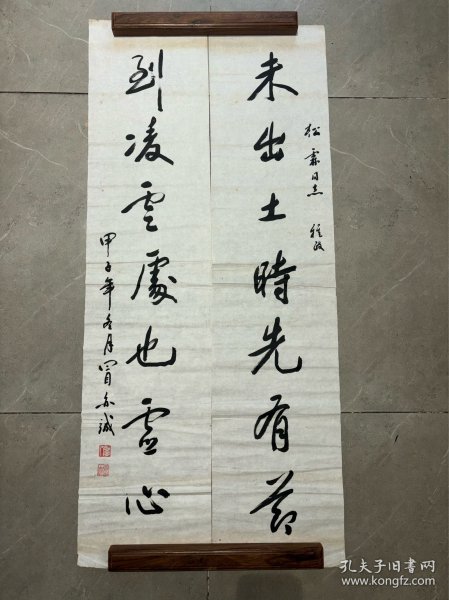 未出土時先有節
松霖同志 雅政
到凌雲處也虛心
甲子年冬月冒亦誠
孔夫子旧书网
www.kongfz.com